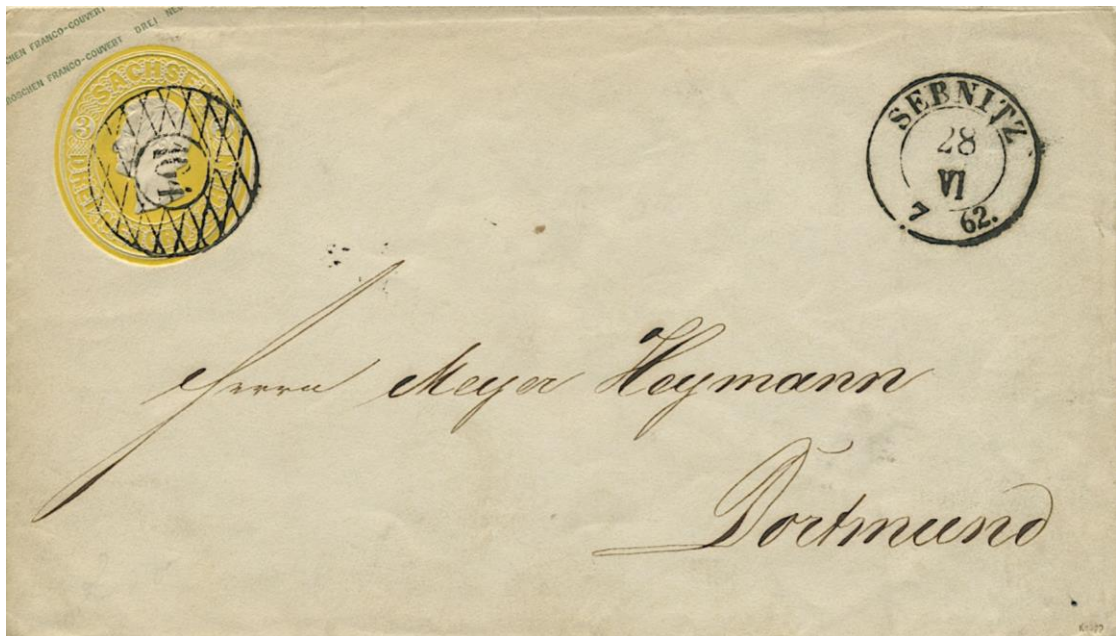 SCHEN FRANCO-COUVERT
ROSCHEN FRANCO-COUVERT DREI NEU
SACHSEN
DREI
104
SEBNITZ
28
VI
7 62.
Herrn Meyer Heymann
Dortmund